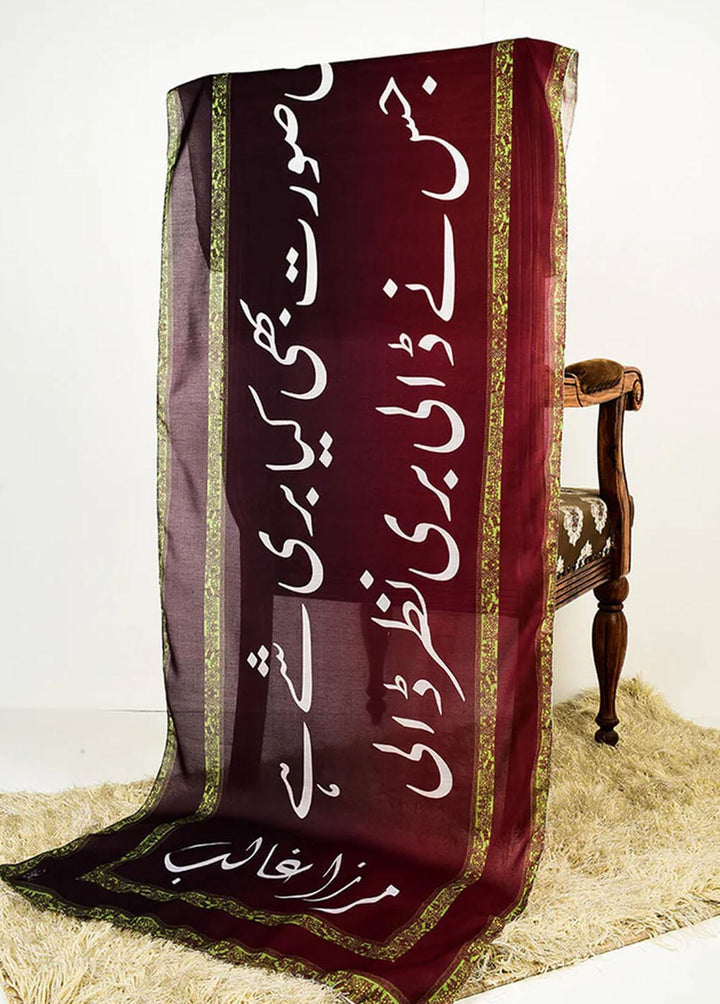 صورت بھی کیا بری شے ہے
جس نے ڈالی بری نظر ڈالی
مرزا غالب